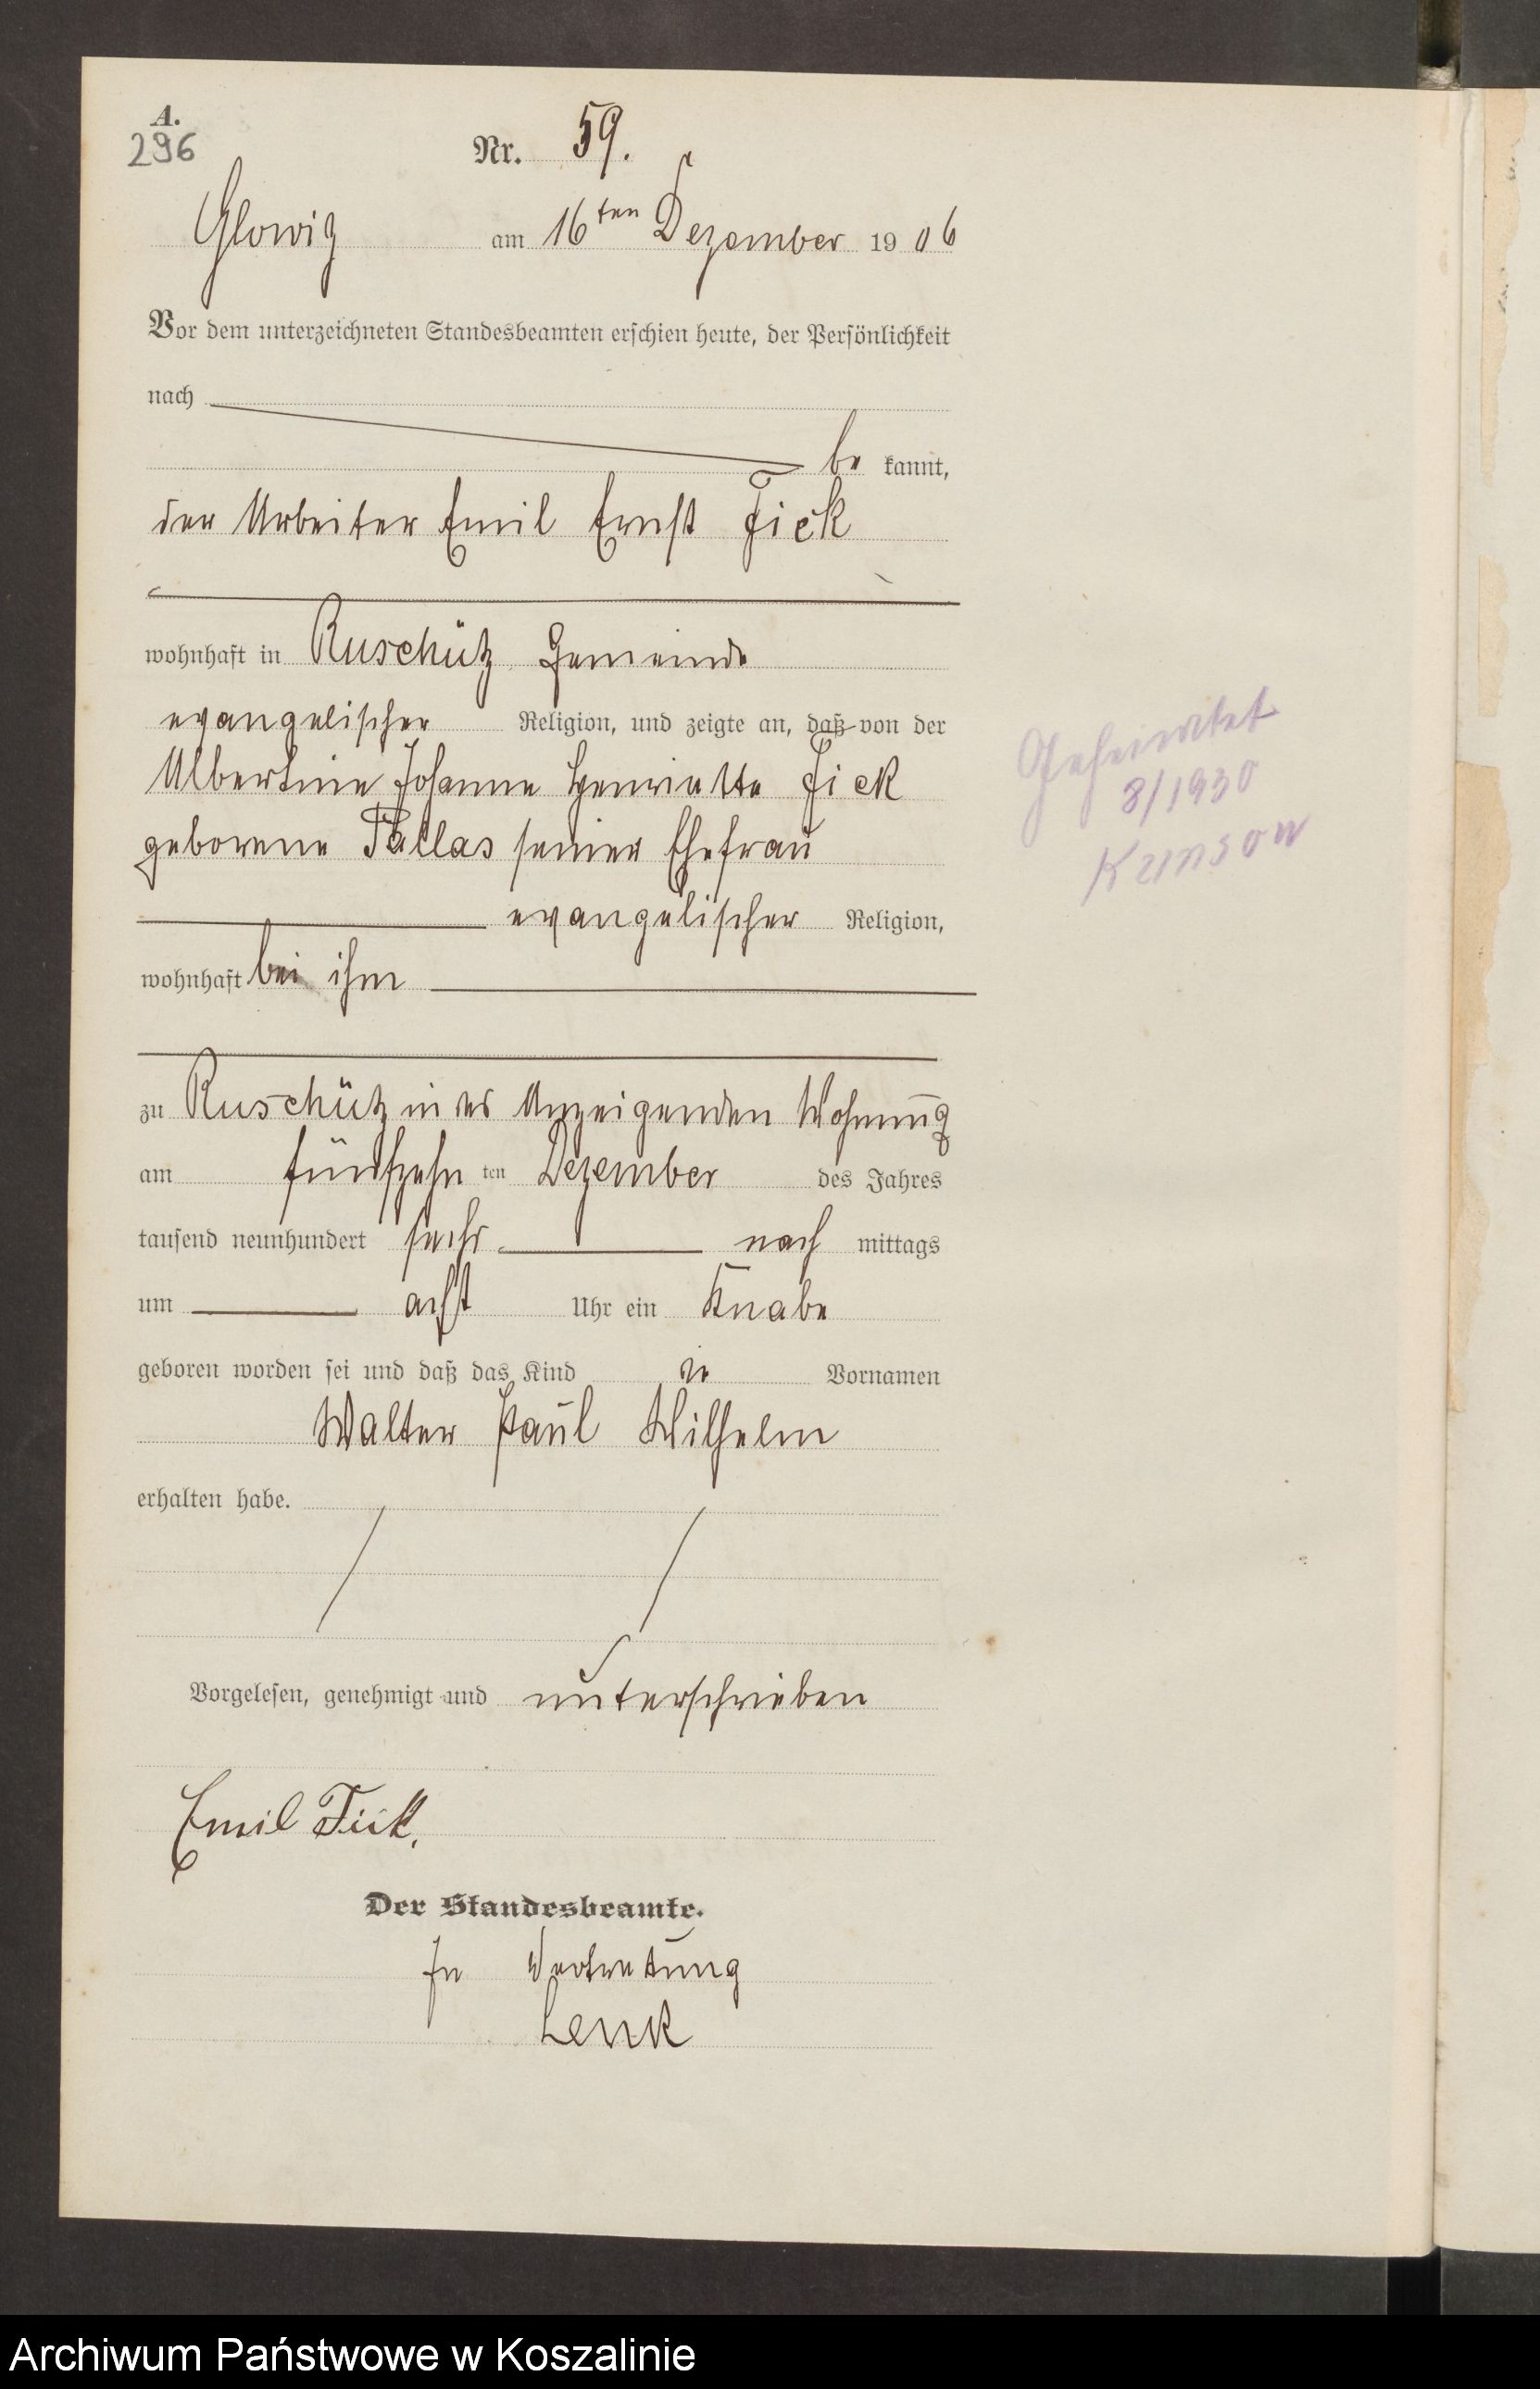 A.
296
Nr. 59.
Glowitz am 16ten Dezember 1906
Vor dem unterzeichneten Standesbeamten erschien heute, der Persönlichkeit
nach
be kannt,
der Arbeiter Emil Ernst Fick
wohnhaft in Ruschütz Gemeinde
evangelischer Religion, und zeigte an, daß von der
Albertine Johanne Henriette Fick
geborene Pallas seiner Ehefrau
evangelischer Religion,
wohnhaft bei ihm
zu Ruschütz in des Anzeigenden Wohnung
am fünfzehn ten Dezember des Jahres
tausend neunhundert sechs nach mittags
um acht Uhr ein Knabe
geboren worden sei und daß das Kind die Vornamen
Walter Paul Wilhelm
erhalten habe.
Vorgelesen, genehmigt und unterschrieben
Emil Fick.
Der Standesbeamte.
In Vertretung
Lenk
Geheiratet
8/1930
Archiwum Państwowe w Koszalinie